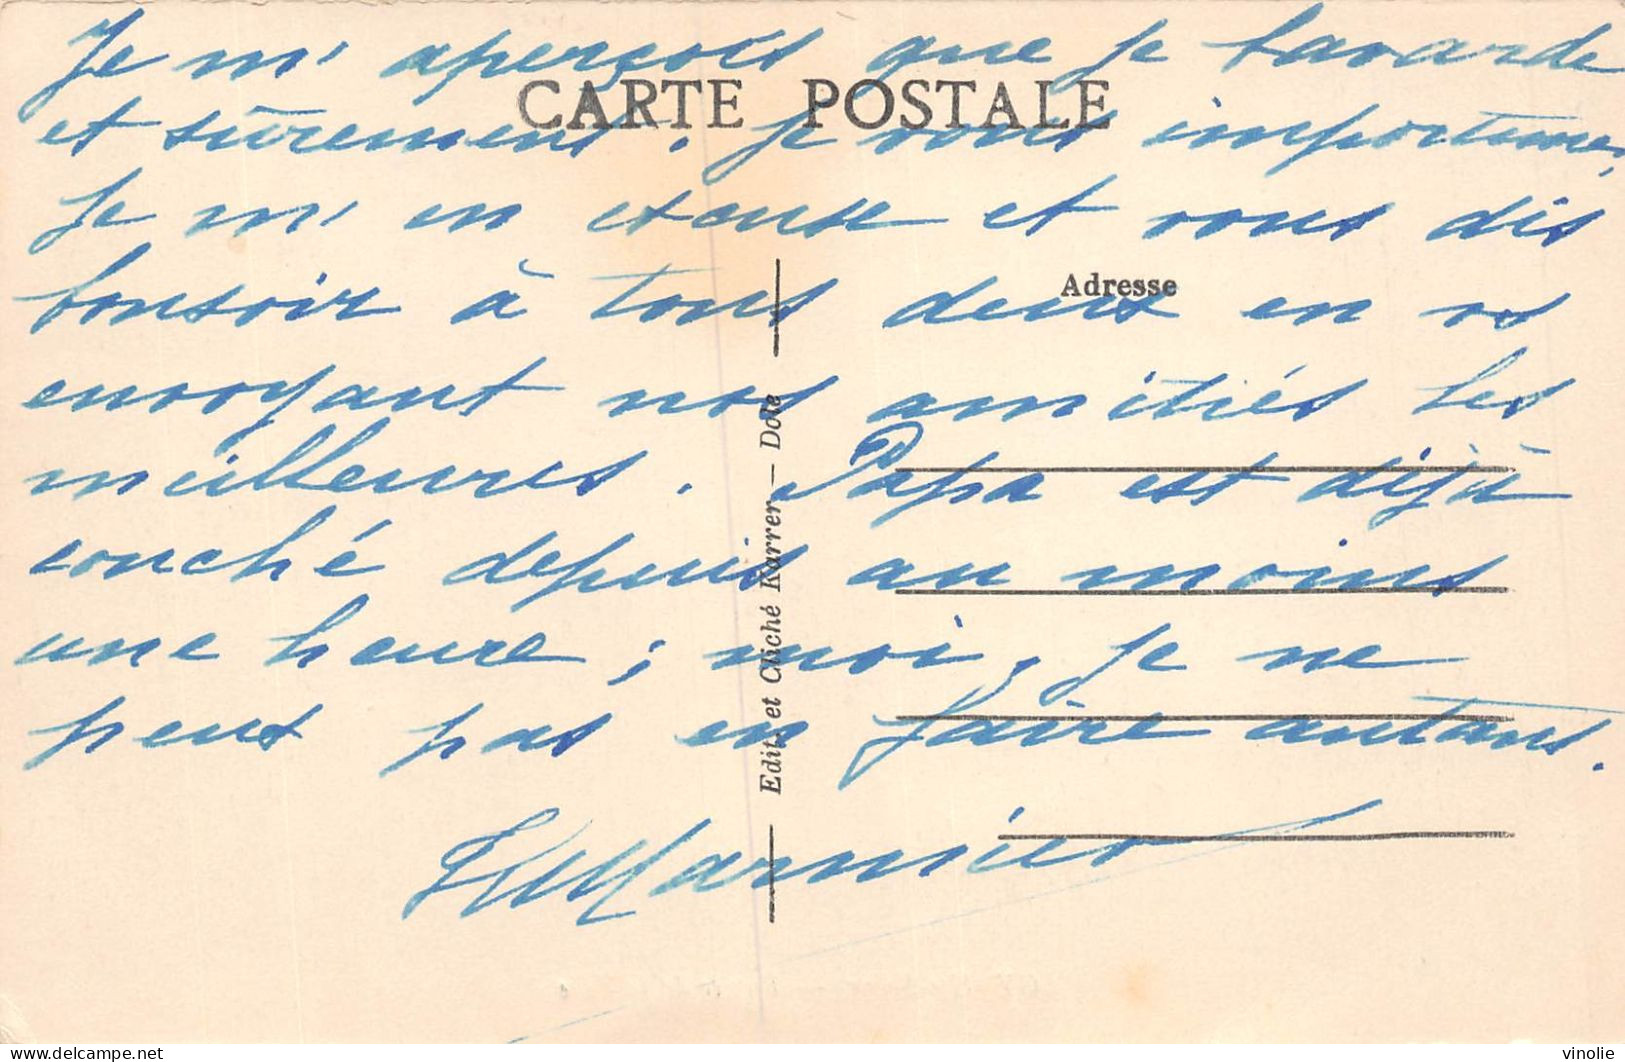 Je m'aperçois que je bavarde
CARTE POSTALE
et sûrement je vous importune,
Je m'en excuse et vous dis
Adresse
bonsoir à tous deux en vs
envoyant nos amitiés les
meilleures. Papa est déjà
couché depuis au moins
une heure ; moi, je ne
peux pas en faire autant.
Edit. et Cliché Karrer — Dole
delcampe.net
vinolie